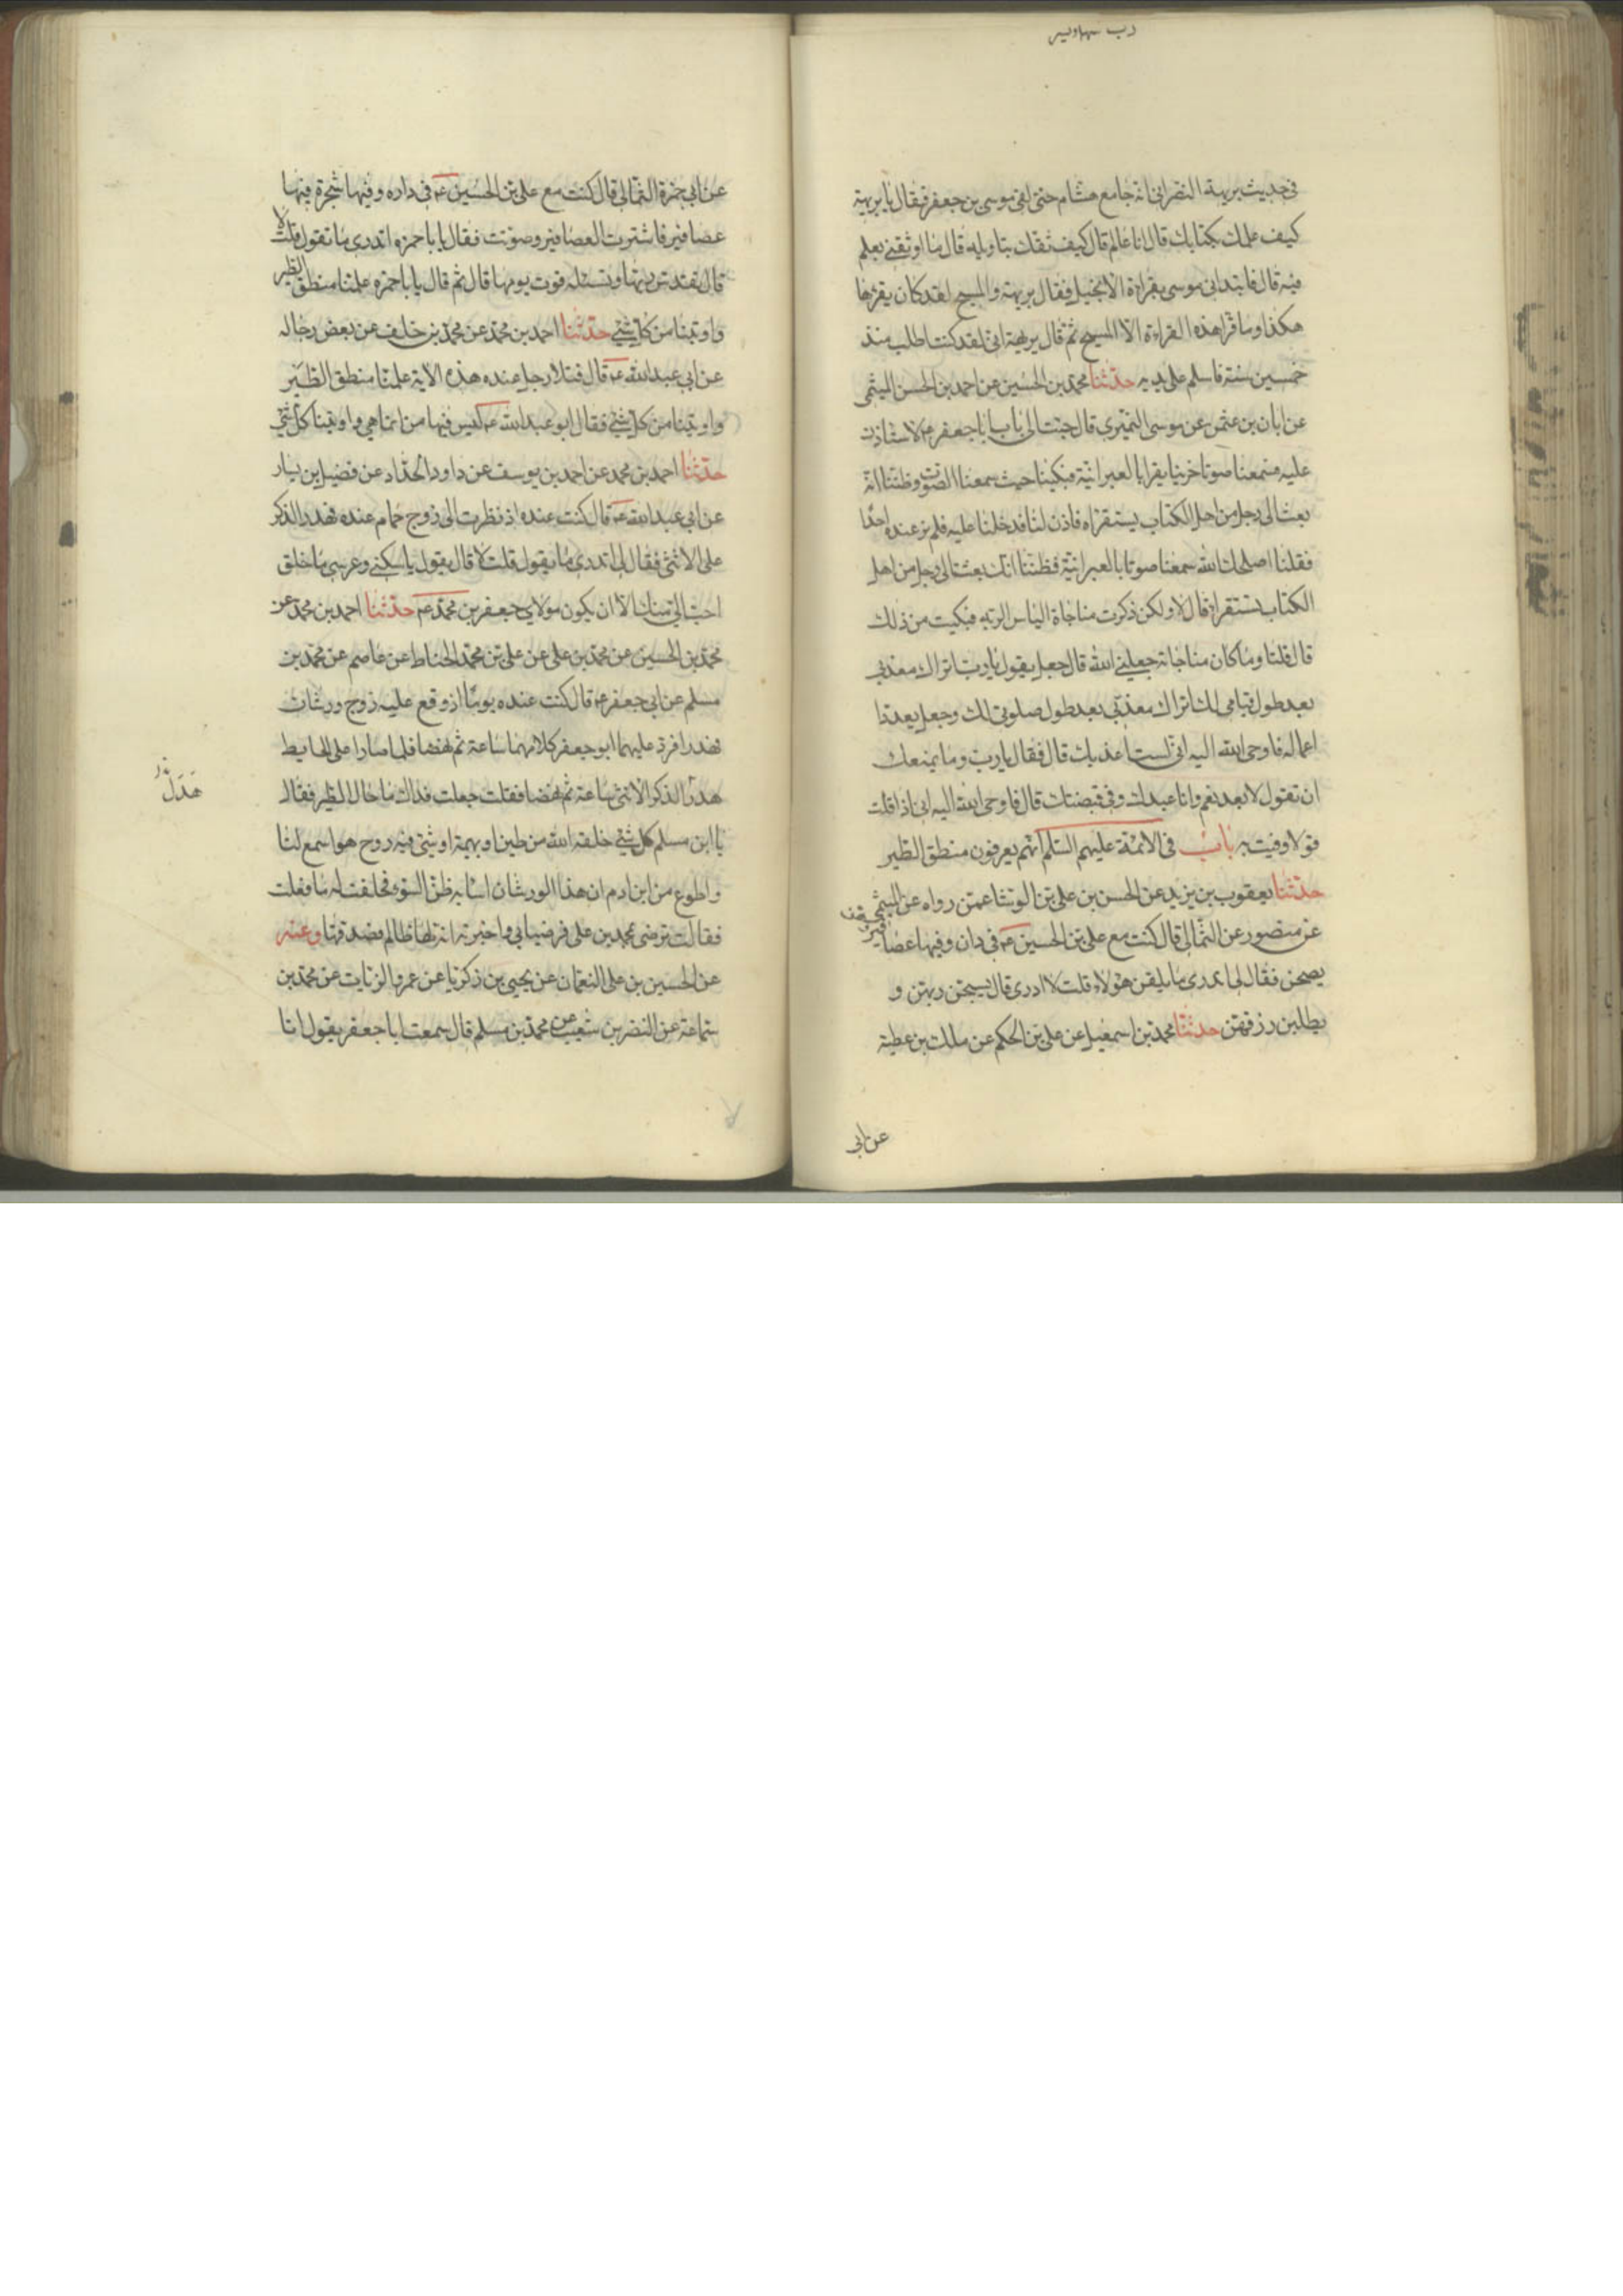 في حديث بريهة النصراني انه جا مع هشام حتى لقى موسى بن جعفر فقال يا بريهة
كيف علمك بكتابك قال انا عالم قال كيف ثقتك بتاويله قال ما اوثقني بعلمي
فيه قال فابتداني موسى بقراءة الانجيل فقال بريهة والمسيح لقد كان يقرؤها
هكذا وما قرا هذه القراءة الا المسيح ثم قال بريهة اني لقد كنت اطلب منذ
خمسين سنة فاسلم على يديه حدثنا محمد بن الحسين عن احمد بن الحسن الميثمي
عن ابان بن عثمن عن موسى النميري قال جئت الى باب ابا جعفر ع لاستاذن
عليه فسمعنا صوتا حزينا يقرا بالعبرانية فبكينا حيث سمعنا الصوت وظننا انه
بعث الى رجل من اهل الكتاب يستقراه فاذن لنا فدخلنا عليه فلم نر عنده احدا
فقلنا اصلحك الله سمعنا صوتا بالعبرانية فظننا انك بعثت الى رجل من اهل
الكتاب تستقراه قال لا ولكن ذكرت مناجاة الياس لربه فبكيت من ذلك
قال قلنا وما كان مناجاته جعلني الله قال جعل يقول يا رب اتراك معذبي
بعد طول قيامي لك اتراك معذبي بعد طول صلوتي لك وجعل يعدد
اعماله فاوحى الله اليه اني لست اعذبك قال فقال يا رب وما يمنعك
ان تقول لا بعد نعم وانا عبدك وفي قبضتك قال فاوحى الله اليه اني اذا قلت
قولا وفيت به باب في الائمة عليهم السلم انهم يعرفون منطق الطير
حدثنا يعقوب بن يزيد عن الحسن بن علي بن الوشا عمن رواه عن الميثمي
عن منصور عن الثمالي قال كنت مع علي بن الحسين ع في داره وفيها عصافير
يصحن فقال لي اتدري ما يقلن هؤلاء قلت لا ادري قال يسبحن ربهن و
يطلبن رزقهن حدثنا محمد بن اسمعيل عن علي بن الحكم عن ملك بن عطية
عن ابي
عن ابي حمزة الثمالي قال كنت مع علي بن الحسين ع في داره وفيها شجرة فيها
عصافير فانتثرت العصافير وصوتت فقال يا با حمزه اتدري ما تقول قلت لا
قال تقدس ربها وتسئله قوت يومها قال ثم قال يا با حمزه علمنا منطق الطير
واوتينا من كل شئ حدثنا احمد بن محمد عن محمد بن خلف عن بعض رجاله
عن ابي عبد الله ع قال فتلا رجل عنده هذه الاية علمنا منطق الطير
واوتينا من كل شئ فقال ابو عبد الله ع ليس فيها من انما هي واوتينا كل شئ
حدثنا احمد بن محمد عن احمد بن يوسف عن داود الحداد عن فضيل بن يسار
عن ابي عبد الله ع قال كنت عنده اذ نظرت الى زوج حمام عنده فهدر الذكر
على الانثى فقال لي اتدري ما يقول قلت لا قال يقول يا سكني وعرسي ما خلق
احب الي منك الا ان يكون مولاي جعفر بن محمد ع حدثنا احمد بن محمد عن
محمد بن الحسين عن محمد بن علي عن علي بن محمد الحناط عن عاصم عن محمد بن
مسلم عن ابي جعفر ع قال كنت عنده يوما اذ وقع عليه زوج ورشان
فهدرا فرد عليهما ابو جعفر كلامهما ساعة ثم نهضا فلما صارا على الحايط
هدر الذكر الانثى ساعة ثم نهضا فقلت جعلت فداك ما حال الطير فقال
هدل
يا ابن مسلم كل شئ خلقه الله من طير او بهيمة او شئ فيه روح هو اسمع لنا
واطوع من ابن ادم ان هذا الورشان اساء به ظن السوء فحلفت له ما فعلت
فقالت ترضى محمد بن علي فرضيا بي واخبرته انه لها ظالم فصدقها وعنه
عن الحسين بن علي النعمان عن يحيى بن زكريا عن عمرو الزيات عن محمد بن
سماعة عن النضر بن شعيب عن محمد بن مسلم قال سمعت ابا جعفر يقول انا